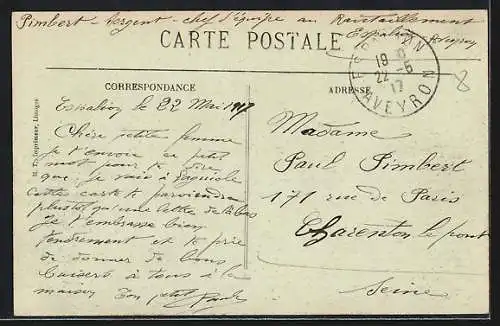 Pimbert - Sergent - chef d'équipe au Ravitaillement
Espalion Aveyron
CARTE POSTALE
ESPALION
19
22 - 5
17
AVEYRON
8
CORRESPONDANCE
ADRESSE
M. T., Imprimeur, Limoges
Espalion le 22 Mai 1917
Chère petite femme
je t'envoie ce petit
mot pour te dire
que je vais à Laguiole
cette carte te parviendra
plustot qu'une lettre de là bas
Je t'embrasse bien
tendrement et te prie
de donner de bons
baisers à tous à la
maison Ton petit Paul
Madame
Paul Pimbert
171 rue de Paris
Charenton le pont
Seine